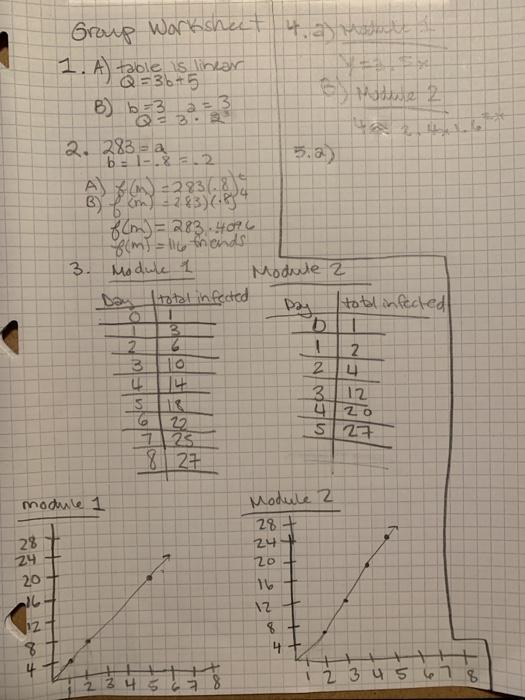 Group Worksheet
1. A) table is linear
Q = 3b+5
B) b=3 a=3
Q = 3 ·
2. 283 = a
b = 1-.8 = .2
A) f(m) = 283(.8)^t
B) f(m) = 283)(.8)^4
f(m) = 283 · .4096
f(m) = 116 friends
3. Module 1
Day total infected
0 1
1 3
2 6
3 10
4 14
5 18
6 22
7 25
8 27
Module 2
Day total infected
0 1
1 2
2 4
3 12
4 20
5 27
module 1
28
24
20
16
12
8
4
1 2 3 4 5 6 7 8
Module 2
28
24
20
16
12
8
4
1 2 3 4 5 6 7 8
4. a) Module 1
y = 3.5x
b) Module 2
5. a)